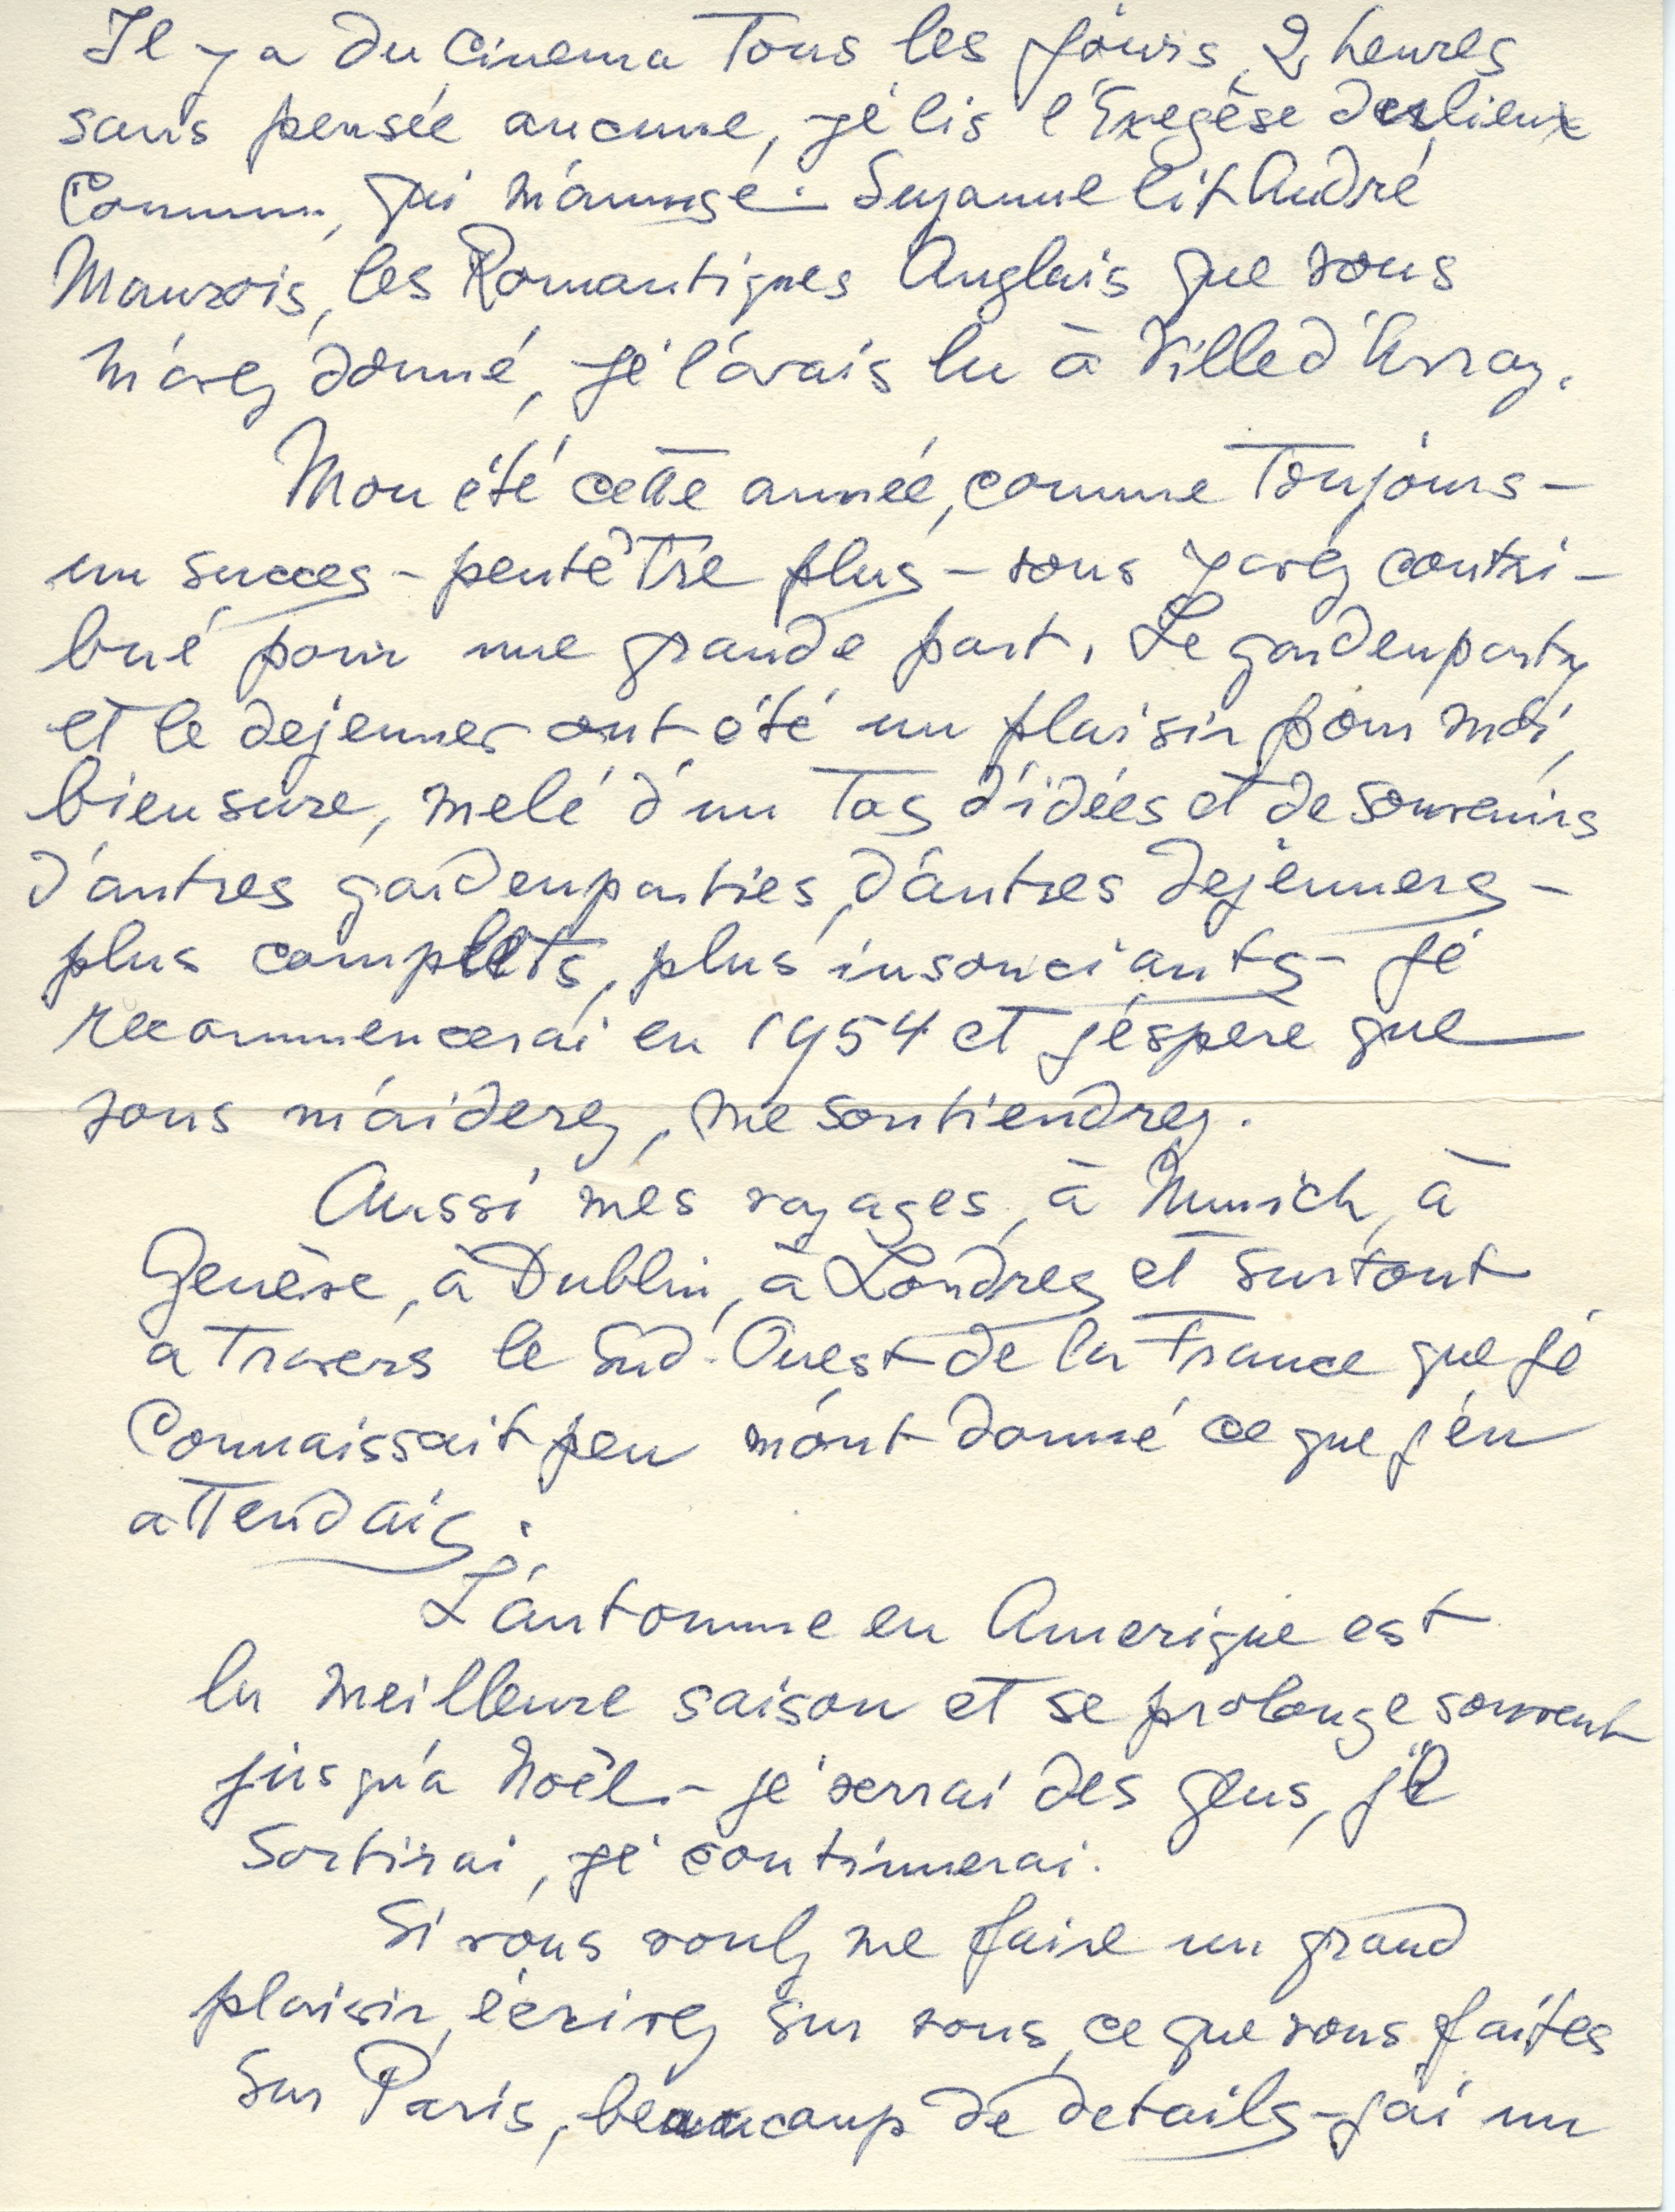 Il y a du Cinema tous les jours, 2 heures
sans pensée aucune, je lis l'Exegèse des lieux
Commun, qui m'amuse. Suzanne lit André
Maurois, les Romantiques Anglais que vous
m'avez donné, je l'avais lu à Ville d'Avray.
Mon été cette année, comme toujours -
un succes - peutêtre plus - vous y avez contri-
bué pour une grande part. Le gardenparty
et le dejeuner ont été un plaisir pour moi,
bien sure, melé d'un tas d'idées et de souvenirs
d'autres gardenparties, d'autres dejeuners -
plus complets, plus insouciants - je
recommencerai en 1954 et j'espere que
vous m'aiderez, me soutiendrez.
Aussi mes voyages, à Munich, à
Genève, à Dublin, à Londres et surtout
a travers le Sud-Ouest de la France que je
Connaissait peu m'ont donné ce que j'en
attendais.
L'automne en Amerique est
la meilleure saison et se prolonge souvent
jusqu'a Noël. - je verrai des gens, je
sortirai, je continuerai.
Si vous voulez me faire un grand
plaisir, écrivez sur vous, ce que vous faites
sur Paris, beaucoup de details - j'ai un